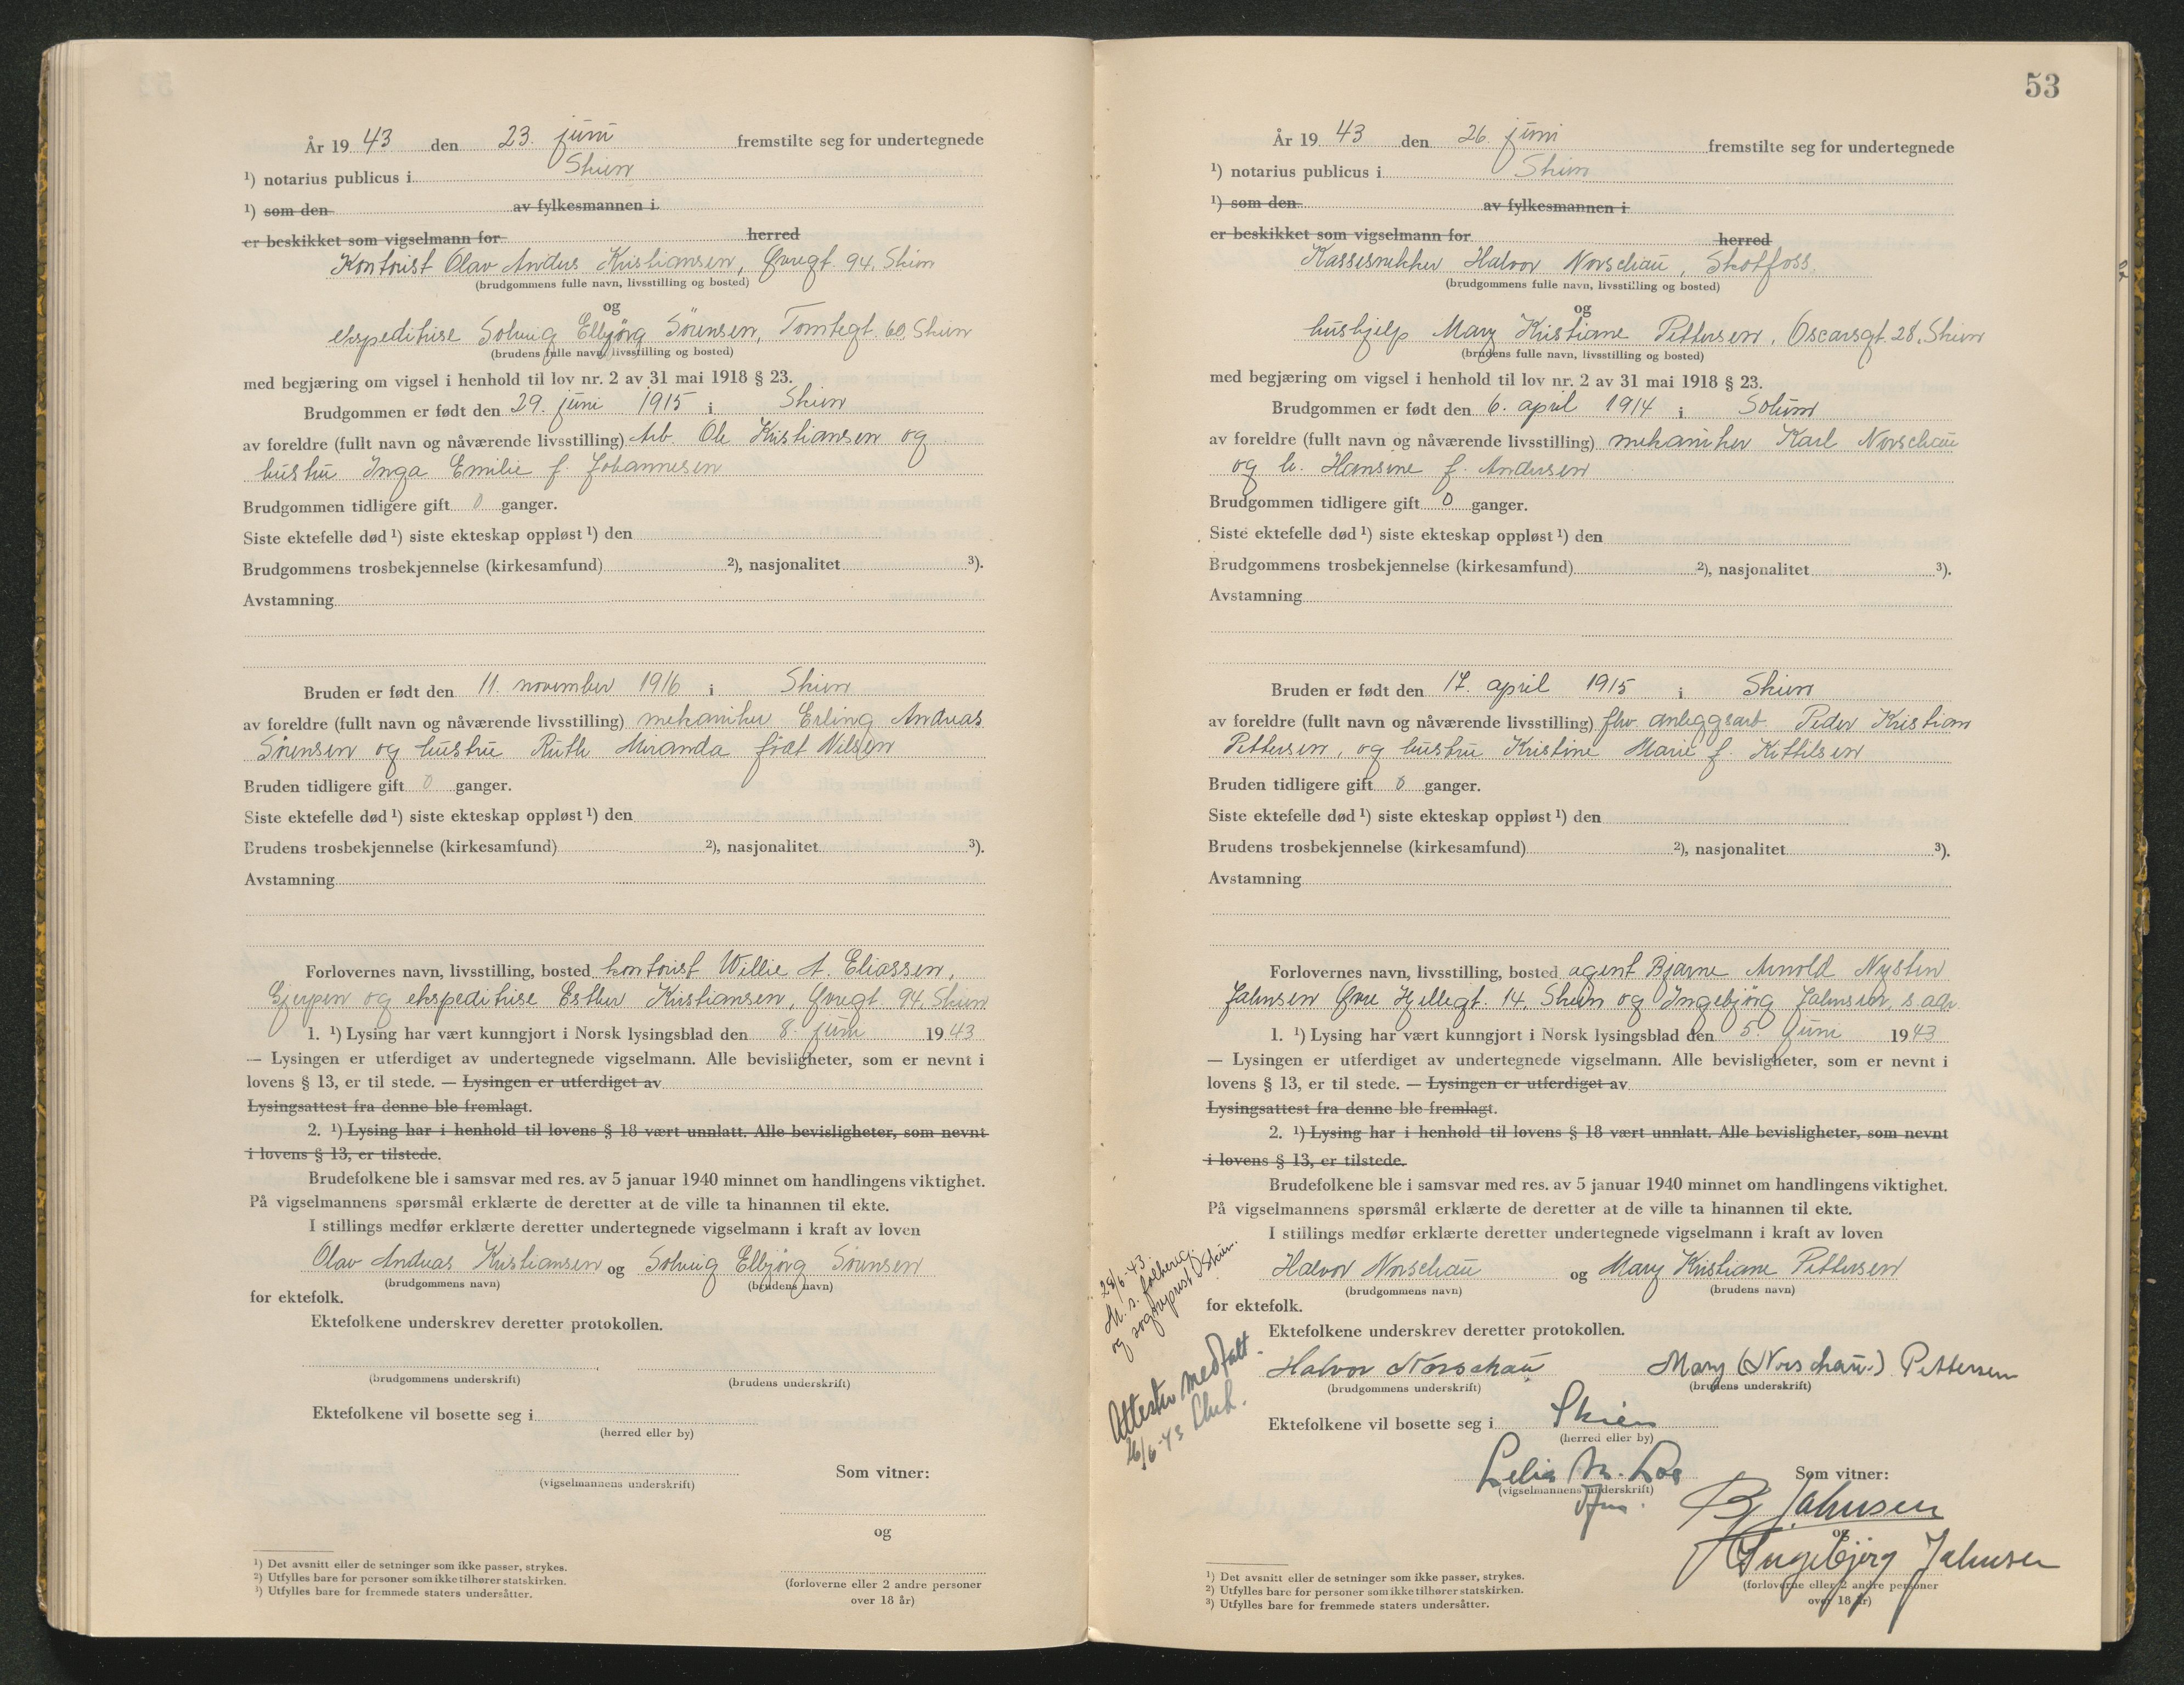 År 19 43 den 23. juni fremstilte seg for undertegnede
¹) notarius publicus i Skien
¹) som den av fylkesmannen i
er beskikket som vigselmann for herred
Kontorist Olav Andreas Kristiansen, Øvregt. 94, Skien
(brudgommens fulle navn, livsstilling og bosted)
og
ekspeditrise Solveig Elbjørg Sørensen, Tomtegt. 60, Skien
(brudens fulle navn, livsstilling og bosted)
med begjæring om vigsel i henhold til lov nr. 2 av 31 mai 1918 § 23.
Brudgommen er født den 29. juni 1915 i Skien
av foreldre (fullt navn og nåværende livsstilling) Arb. Ole Kristiansen og
hustru Inga Emilie f. Johannesen
Brudgommen tidligere gift 0 ganger.
Siste ektefelle død ¹) siste ekteskap oppløst ¹) den
Brudgommens trosbekjennelse (kirkesamfund) ²), nasjonalitet ³).
Avstamning
Bruden er født den 11. november 1916 i Skien
av foreldre (fullt navn og nåværende livsstilling) mekaniker Erling Andreas
Sørensen og hustru Ruth Miranda født Nilsen
Bruden tidligere gift 0 ganger.
Siste ektefelle død ¹) siste ekteskap oppløst ¹) den
Brudens trosbekjennelse (kirkesamfund) ²), nasjonalitet ³).
Avstamning
Forlovernes navn, livsstilling, bosted kontorist Willie A. Eliassen,
Gjerpen og ekspeditrise Esther Kristiansen, Øvregt. 94, Skien
1. ¹) Lysing har vært kunngjort i Norsk lysingsblad den 8. juni 19 43
— Lysingen er utferdiget av undertegnede vigselmann. Alle bevisligheter, som er nevnt i
lovens § 13, er til stede. — Lysingen er utferdiget av
Lysingsattest fra denne ble fremlagt.
2. ¹) Lysing har i henhold til lovens § 18 vært unnlatt. Alle bevisligheter, som nevnt
i lovens § 13, er tilstede.
Brudefolkene ble i samsvar med res. av 5 januar 1940 minnet om handlingens viktighet.
På vigselmannens spørsmål erklærte de deretter at de ville ta hinannen til ekte.
I stillings medfør erklærte deretter undertegnede vigselmann i kraft av loven
Olav Andreas Kristiansen og Solveig Elbjørg Sørensen
(brudgommens navn) (brudens navn)
for ektefolk.
Ektefolkene underskrev deretter protokollen.
(brudgommens underskrift) (brudens underskrift)
Ektefolkene vil bosette seg i
(herred eller by)
Som vitner:
(vigselmannens underskrift)
og
¹) Det avsnitt eller de setninger som ikke passer, strykes.
²) Utfylles bare for personer som ikke tilhører statskirken.
³) Utfylles bare for fremmede staters undersåtter.
(forloverne eller 2 andre personer
over 18 år)
53
År 19 43 den 26. juni fremstilte seg for undertegnede
¹) notarius publicus i Skien
¹) som den av fylkesmannen i
er beskikket som vigselmann for herred
Kassesnekker Halvor Norschau, Skotfoss
(brudgommens fulle navn, livsstilling og bosted)
og
hushjelp Mary Kristiane Pettersen, Oscarsgt. 28, Skien
(brudens fulle navn, livsstilling og bosted)
med begjæring om vigsel i henhold til lov nr. 2 av 31 mai 1918 § 23.
Brudgommen er født den 6. april 1914 i Solum
av foreldre (fullt navn og nåværende livsstilling) mekaniker Karl Norschau
og h. Hansine f. Andersen
Brudgommen tidligere gift 0 ganger.
Siste ektefelle død ¹) siste ekteskap oppløst ¹) den
Brudgommens trosbekjennelse (kirkesamfund) ²), nasjonalitet ³).
Avstamning
Bruden er født den 17. april 1915 i Skien
av foreldre (fullt navn og nåværende livsstilling) fhv. anleggsarb. Peder Kristian
Pettersen, og hustru Kristine Marie f. Kittilsen
Bruden tidligere gift 0 ganger.
Siste ektefelle død ¹) siste ekteskap oppløst ¹) den
Brudens trosbekjennelse (kirkesamfund) ²), nasjonalitet ³).
Avstamning
Forlovernes navn, livsstilling, bosted agent Bjarne Arnold Nysten
Jahnsen Øvre Hjellegt. 14, Skien og Ingebjørg Jahnsen, s. adr.
1. ¹) Lysing har vært kunngjort i Norsk lysingsblad den 5. juni 19 43
— Lysingen er utferdiget av undertegnede vigselmann. Alle bevisligheter, som er nevnt i
lovens § 13, er til stede. — Lysingen er utferdiget av
Lysingsattest fra denne ble fremlagt.
2. ¹) Lysing har i henhold til lovens § 18 vært unnlatt. Alle bevisligheter, som nevnt
i lovens § 13, er tilstede.
Brudefolkene ble i samsvar med res. av 5 januar 1940 minnet om handlingens viktighet.
På vigselmannens spørsmål erklærte de deretter at de ville ta hinannen til ekte.
I stillings medfør erklærte deretter undertegnede vigselmann i kraft av loven
Halvor Norschau og Mary Kristiane Pettersen
(brudgommens navn) (brudens navn)
for ektefolk.
Ektefolkene underskrev deretter protokollen.
Halvor Norschau Mary (Norschau) Pettersen
(brudgommens underskrift) (brudens underskrift)
Ektefolkene vil bosette seg i Skien
(herred eller by)
Som vitner:
(vigselmannens underskrift)
B Jahnsen
og
Ingebjørg Jahnsen
(forloverne eller 2 andre personer
over 18 år)
¹) Det avsnitt eller de setninger som ikke passer, strykes.
²) Utfylles bare for personer som ikke tilhører statskirken.
³) Utfylles bare for fremmede staters undersåtter.
28/6-43.
M. s. folkereg.
og sogneprest Skien.
Attester medfält.
26/6-43